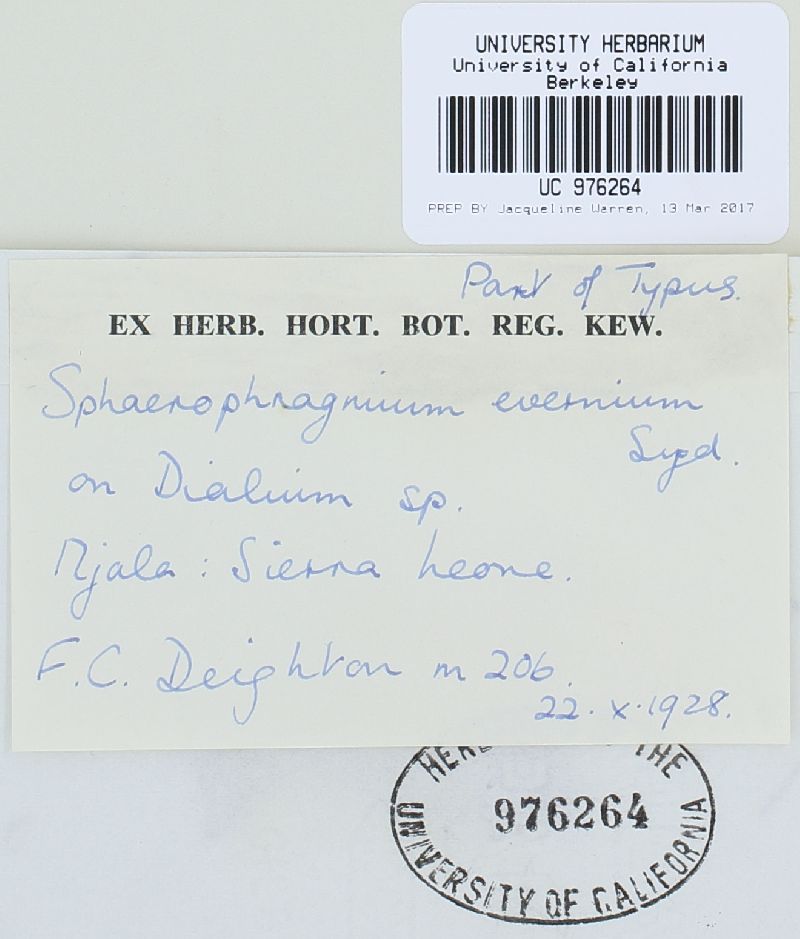 UNIVERSITY HERBARIUM
University of California
Berkeley
UC 976264
PREP BY Jacqueline Warren, 13 Mar 2017
Part of Typus.
EX HERB. HORT. BOT. REG. KEW.
Sphaerophragmium evernium
Syd.
on Dialium sp.
Njala : Sierra Leone.
F.C. Deighton m 206.
22.X.1928.
THE
976264
UNIVERSITY OF CALIFORNIA